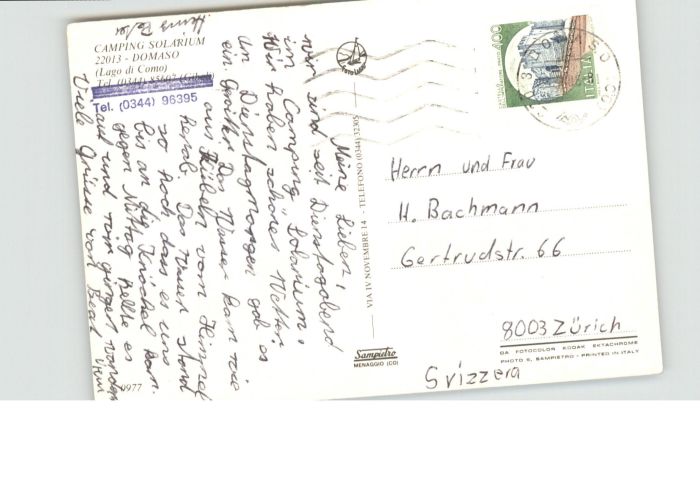 CAMPING SOLARIUM
22013 - DOMASO
(Lago di Como)
Tel. (0344) 96395
Meine Lieben!
wir sind seit Dienstagabend
im Camping "Solarium".
Wir haben schönes Wetter.
Am Dienstagmorgen gab es
ein Gewitter. Das Wasser kam wie
aus Kübeln vom Himmel
herab. Das Wasser stand
so hoch das es uns
bis an die Knöchel kam.
gegen Mittag hellte es
auf und wir gingen
Viele Grüsse von Beat
Heinz Peter
9977
VIA IV NOVEMBRE 14 - TELEFONO (0344) 32305
Sampietro
MENAGGIO (CO)
400
ITALIA
Herrn und Frau
H. Bachmann
Gertrudstr. 66
8003 Zürich
Svizzera
DA FOTOCOLOR KODAK EKTACHROME
PHOTO E. SAMPIETRO - PRINTED IN ITALY